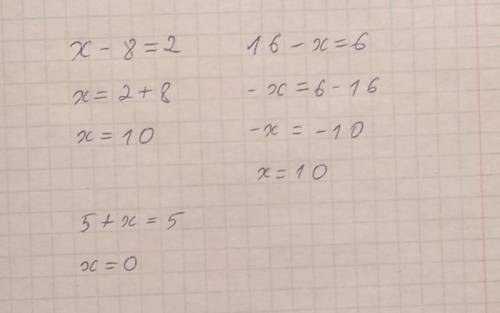 x - 8 = 2
x = 2 + 8
x = 10
16 - x = 6
- x = 6 - 16
-x = -10
x = 10
5 + x = 5
x = 0